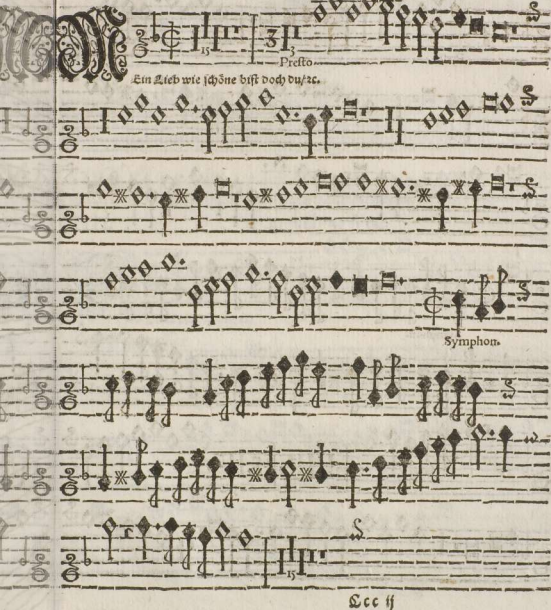 15
3
3
Presto
Ein Lieb wie schöne bist doch du/ ꝛc.
Symphon.
15
Ccc ij